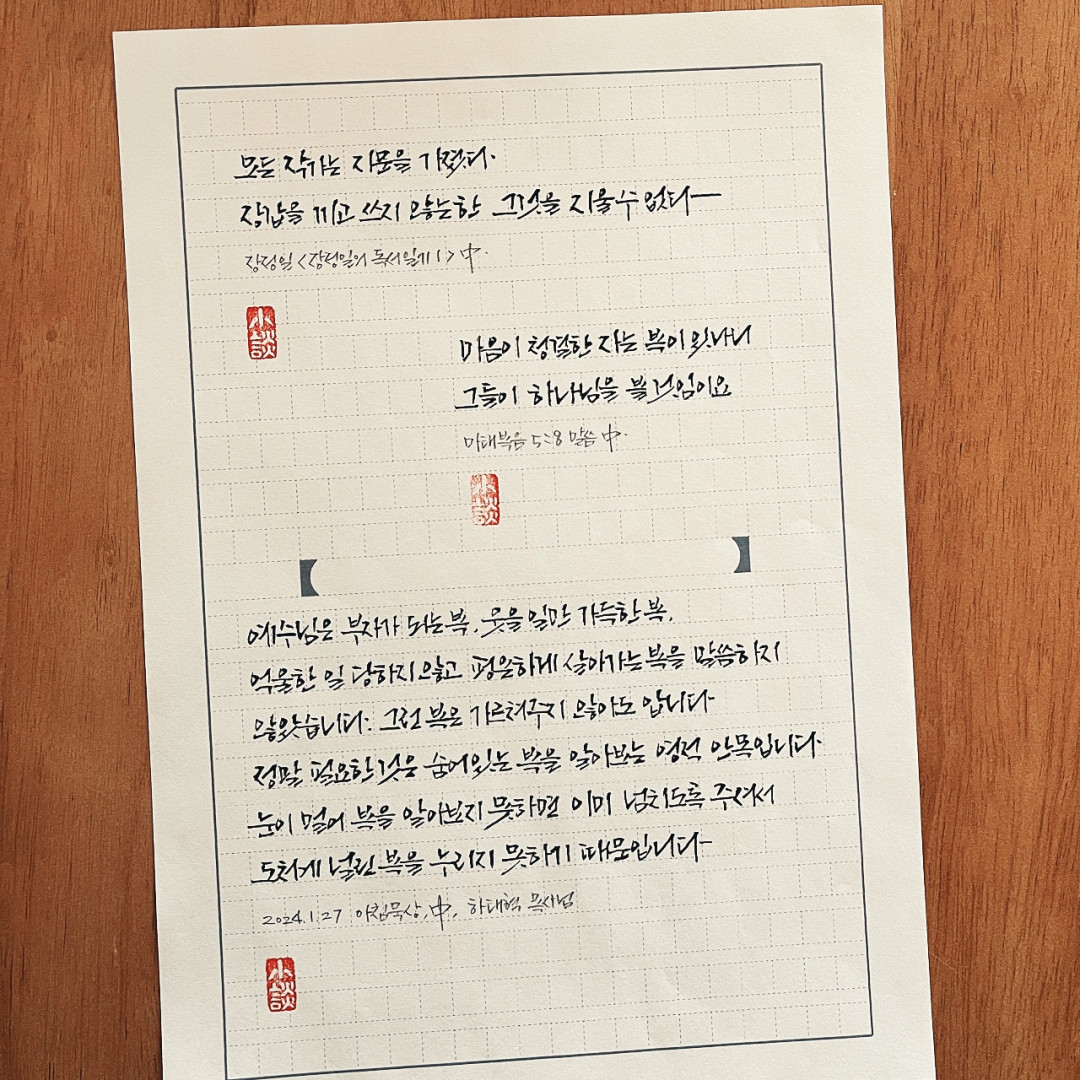 모든 작가는 지문을 가졌다.
장갑을 끼고 쓰지 않는한 그것을 지울수 없다—
장정일 <장정일의 독서일기 1> 中.
小談
마음이 청결한 자는 복이 있나니
그들이 하나님을 볼 것임이요
마태복음 5:8 말씀 中.
小談
예수님은 부자가 되는 복, 웃을 일만 가득한 복,
억울한 일 당하지 않고 평온하게 살아가는 복을 말씀하지
않았습니다. 그런 복은 가르쳐주지 않아도 압니다.
정말 필요한 것은 숨어있는 복을 알아보는 영적 안목입니다.
눈이 멀어 복을 알아보지 못하면 이미 넘치도록 주셔서
도처에 널린 복을 누리지 못하기 때문입니다—
2024.1.27 아침묵상, 中, 하대혁 목사님
小談